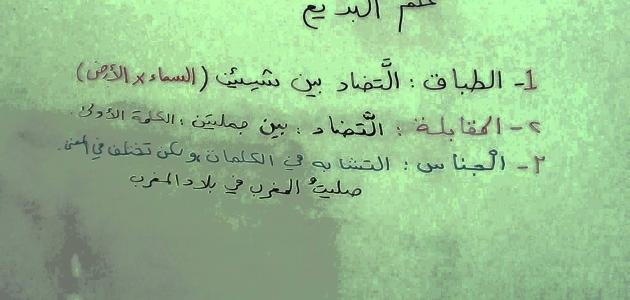 علم البديع
1- الطباق : التَّضاد بين شيئين (السماء x الأرض)
٢- المقابلة : التَّضاد بين جملتين ، الكلمة الأولى
٣- الجناس : التشابه في الكلمات ولكن تختلف في المعنى.
صليتُ المغرب في بلاد المغرب